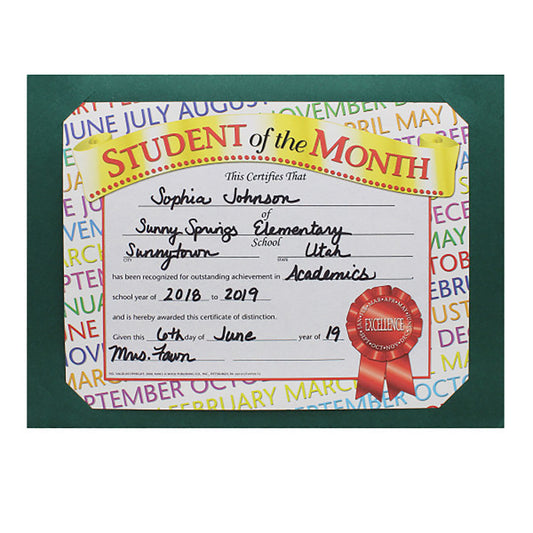 JUNE JULY AUGUST
NOVEMBER
APRIL MAY
STUDENT of the MONTH
This Certifies That
Sophia Johnson
of
Sunny Springs Elementary
School
Sunnytown Utah
CITY STATE
has been recognized for outstanding achievement in Academics
school year of 2018 to 2019
and is hereby awarded this certificate of distinction.
Given this 6th day of June year of 19
Mrs. Fawn
EXCELLENCE
JAN • FEB • MAR • APR • MAY • JUN
SEPT • OCT • NOV • DEC
SEPTEMBER OCTOBER
FEBRUARY MARCH
SEPTEMBER OCT